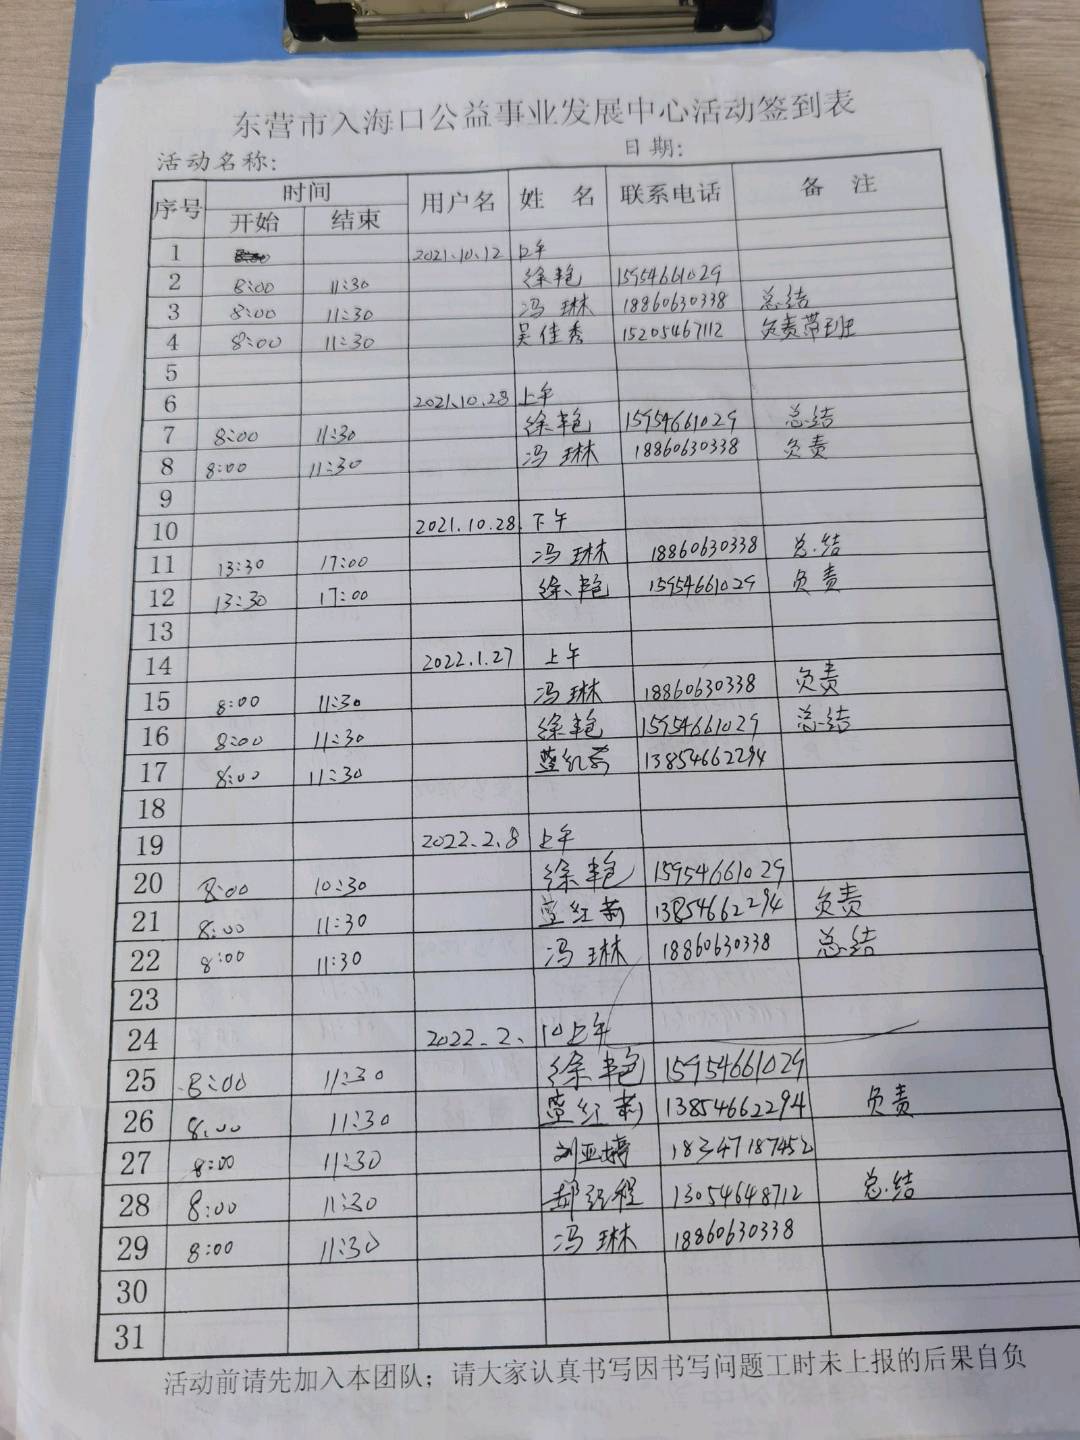 东营市入海口公益事业发展中心活动签到表
活动名称: 日期:
序号 时间 用户名 姓 名 联系电话 备 注
开始 结束
1 2021.10.12 上午
2 8:00 11:30 徐艳 15954661029
3 8:00 11:30 冯琳 18860630338 总结
4 8:00 11:30 吴佳秀 15205467112 负责带班
5
6 2021.10.28 上午
7 8:00 11:30 徐艳 15954661029 总结
8 8:00 11:30 冯琳 18860630338 负责
9
10 2021.10.28 下午
11 13:30 17:00 冯琳 18860630338 总结
12 13:30 17:00 徐艳 15954661029 负责
13
14 2022.1.27 上午
15 8:00 11:30 冯琳 18860630338 负责
16 8:00 11:30 徐艳 15954661029 总结
17 8:00 11:30 13854662294
18
19 2022.2.8 上午
20 8:00 10:30 徐艳 15954661029
21 8:00 11:30 红莉 13854662294 负责
22 8:00 11:30 冯琳 18860630338 总结
23
24 2022.2.10上午
25 8:00 11:30 徐艳 15954661029
26 8:00 11:30 红莉 13854662294 负责
27 8:00 11:30 刘亚婷 18347187452
28 8:00 11:30 程 13054648712 总结
29 8:00 11:30 冯琳 18860630338
30
31
活动前请先加入本团队；请大家认真书写因书写问题工时未上报的后果自负